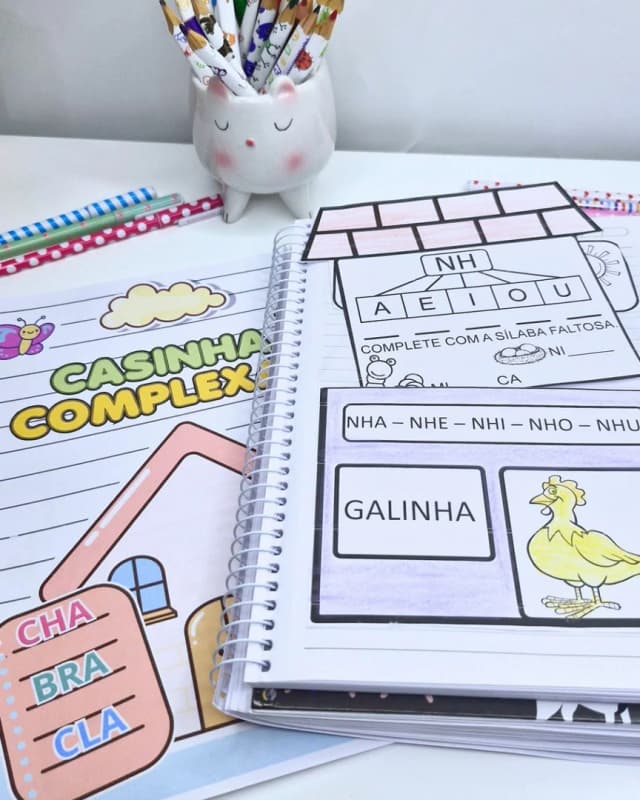 CASINHA
COMPLEX
CHA
BRA
CLA
NH
A E I O U
COMPLETE COM A SÍLABA FALTOSA.
NI ____
CA
NHA – NHE – NHI – NHO – NHU
GALINHA